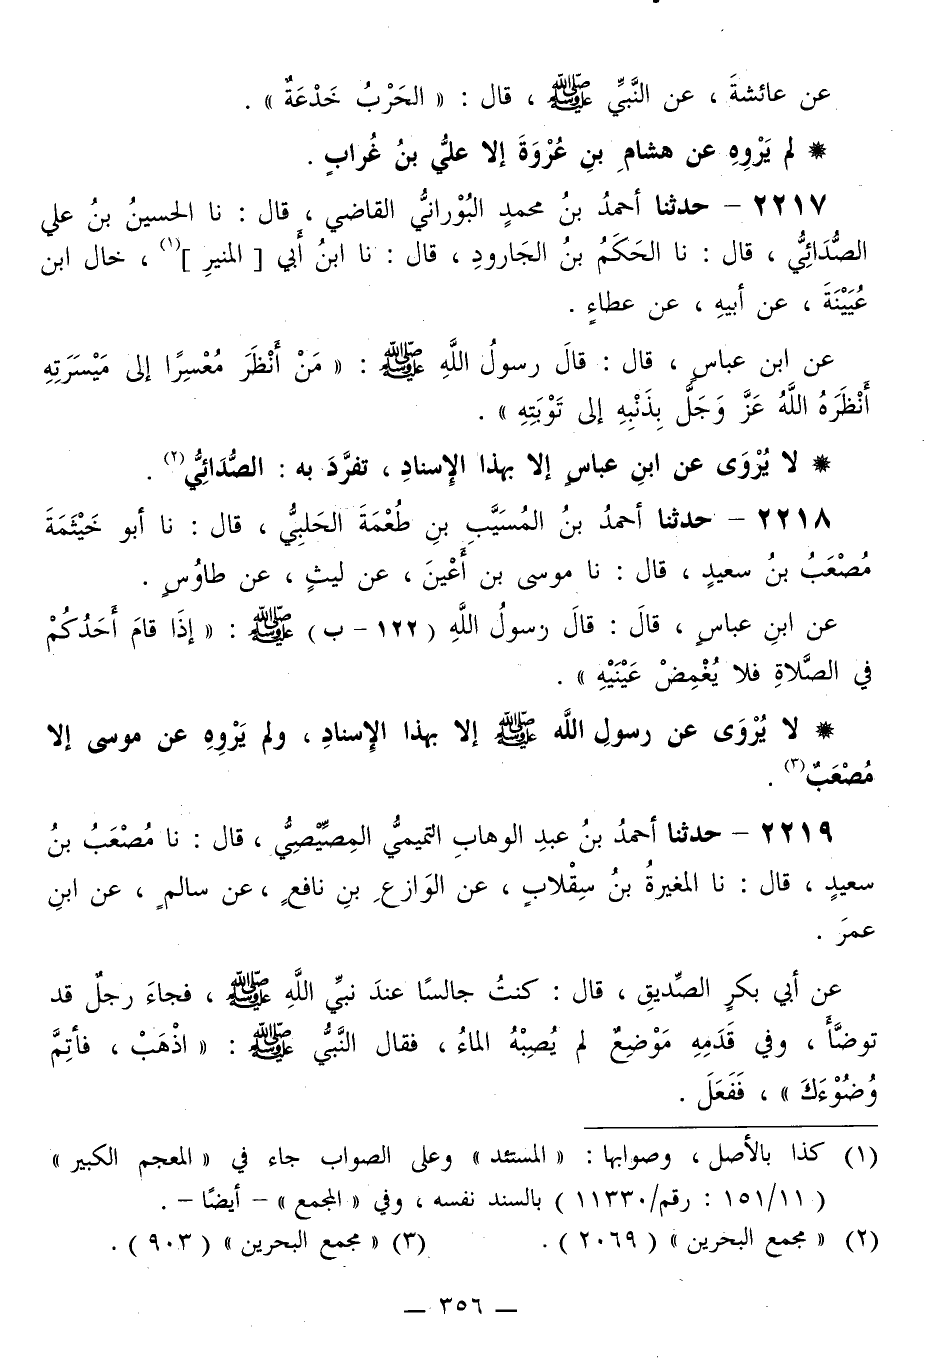 عن عائشةَ ، عن النَّبيِّ ﷺ ، قال : « الحَرْبُ خَدْعَةٌ » .
* لم يَرْوِهِ عن هشامِ بنِ عُرْوَةَ إلا عليُّ بنُ غُرابٍ .
٢٢١٧ – حدثنا أحمدُ بنُ محمدٍ البُوْرانيُّ القاضي ، قال : نا الحسينُ بنُ علي
الصُّدَائِيُّ ، قال : نا الحَكَمُ بنُ الجَارودِ ، قال : نا ابنُ أَبي [ المنيرِ ](١) ، خال ابن
عُيَيْنَةَ ، عن أبيهِ ، عن عطاءٍ .
عن ابن عباسٍ ، قال : قالَ رسولُ اللَّهِ ﷺ : « مَنْ أَنْظَرَ مُعْسِرًا إلى مَيْسَرَتِهِ
أَنْظَرَهُ اللَّهُ عَزَّ وَجَلَّ بِذَنْبِهِ إلى تَوْبَتِهِ » .
* لا يُرْوَى عن ابنِ عباسٍ إلا بهذا الإسنادِ ، تفرَّدَ به : الصُّدَائِيُّ(٢) .
٢٢١٨ – حدثنا أحمدُ بنُ المُسَيَّبِ بنِ طُعْمَةَ الحَلبِيُّ ، قال : نا أبو خَيْثَمَةَ
مُصْعَبُ بنُ سعيدٍ ، قال : نا موسى بن أَعْينَ ، عن ليثٍ ، عن طاوُسٍ .
عن ابنِ عباسٍ ، قالَ : قالَ رسولُ اللَّهِ ( ١٢٢ – ب ) ﷺ : « إذَا قامَ أَحَدُكُمْ
في الصَّلاةِ فلا يُغْمِضْ عَيْنَيْهِ » .
* لا يُرْوَى عن رسولِ اللَّه ﷺ إلا بهذا الإسنادِ ، ولم يَرْوِهِ عن موسى إلا
مُصْعَبٌ(٣) .
٢٢١٩ – حدثنا أحمدُ بنُ عبدِ الوهابِ التميميُّ المِصِّيْصِيُّ ، قال : نا مُصْعَبُ بنُ
سعيدٍ ، قال : نا المغيرةُ بنُ سِقْلابٍ ، عن الوَازعِ بنِ نافعٍ ، عن سالمٍ ، عن ابنِ
عمرَ .
عن أبي بكرٍ الصِّديقِ ، قال : كنتُ جالسًا عندَ نبيِّ اللَّهِ ﷺ ، فجاءَ رجلٌ قد
توضَّأَ ، وفي قَدَمِهِ مَوْضِعٌ لم يُصِبْهُ الماءُ ، فقال النَّبيُّ ﷺ : « اذْهَبْ ، فأتِمَّ
وُضُوْءَكَ » ، فَفَعَلَ .
(١) كذا بالأصل ، وصوابها : « المستئد » وعلى الصواب جاء في « المعجم الكبير »
( ١٥١/١١ : رقم/١١٣٣٠ ) بالسند نفسه ، وفي « المجمع » – أيضًا – .
(٢) « مجمع البحرين » ( ٢٠٦٩ ) . (٣) « مجمع البحرين » ( ٩٠٣ ) .
— ٣٥٦ —